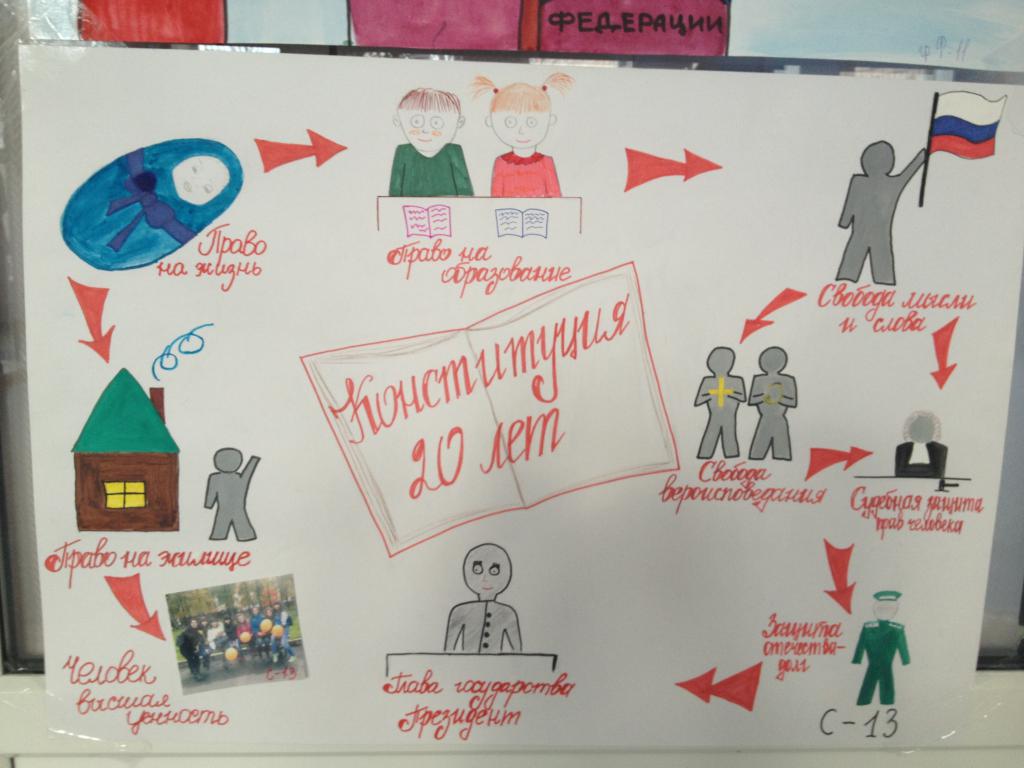 ФЕДЕРАЦИИ
ФФ-11
Право
на жизнь
Право на
образование
Свобода мысли
и слова
Конституция
20 лет
Свобода
вероисповедания
Судебная защита
прав человека
Право на жилище
Человек
высшая
ценность
С-13
Глава государства
Президент
Защита
отечества-
долг
С-13